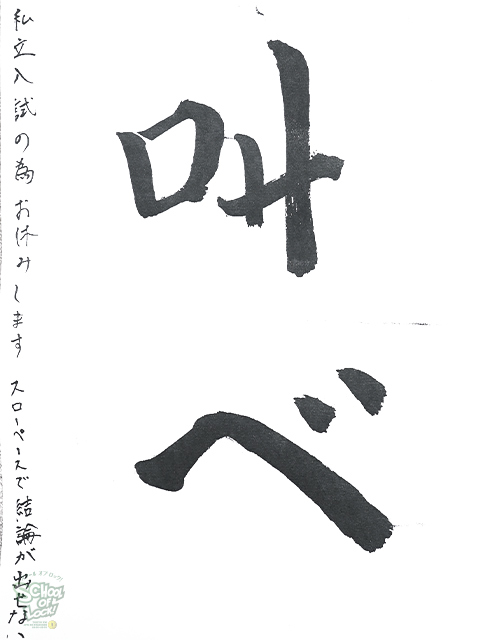 叫べ
私立入試の為お休みします スローペースで結論が出せない
SCHOOL OF LOCK!